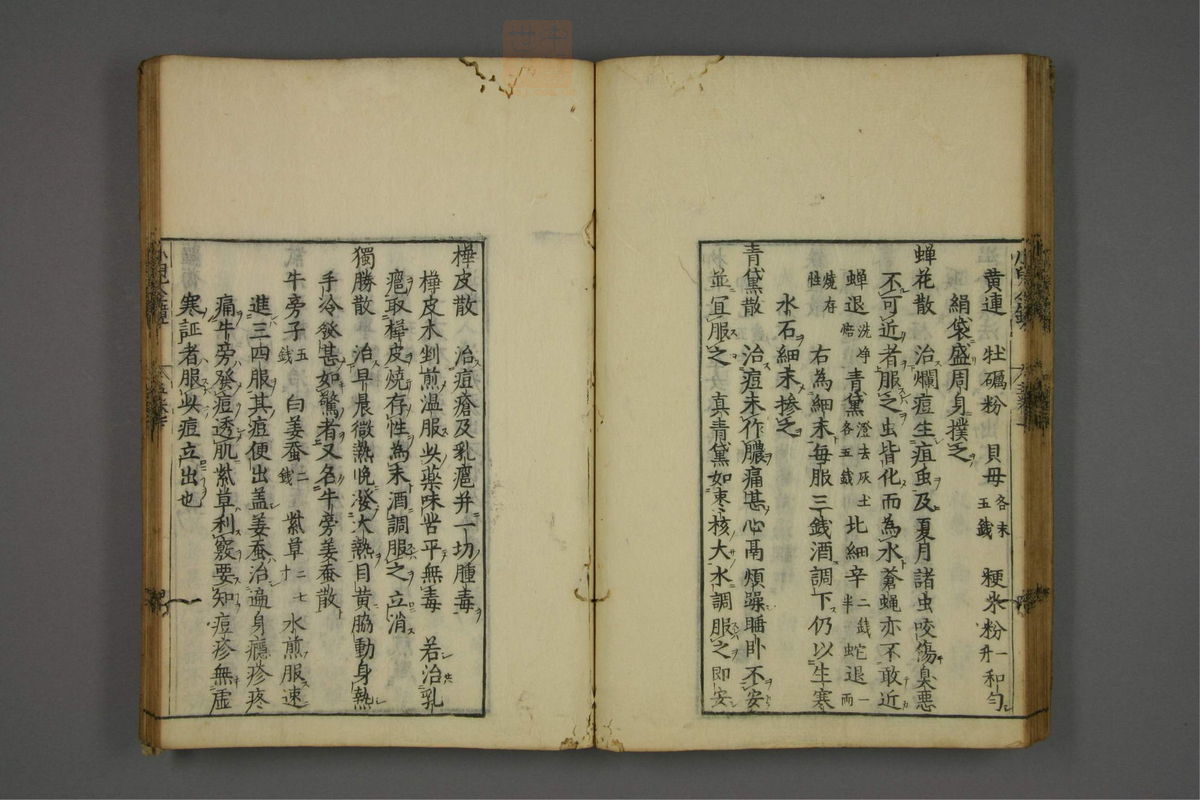 黄連 牡礪粉 貝母各末五錢 粳米粉一升和勻
絹袋盛周身撲之
蝉花散 治爛痘生疽虫及夏月諸虫咬傷臭悪
不可近者服之虫皆化而為水蒼蝿亦不敢近
蝉退洗净焙 青黛澄去灰土各五錢 比細辛二錢半 蛇退一両
燒存性 右為細末毎服三錢酒調下仍以生寒
水石細末摻之
青黛散 治痘未作膿痛甚心鬲煩躁睡卧不安
並宜服之 真青黛如枣核大水調服之即安
樺皮散 治痘瘡及乳𤸷并一切腫毒
樺皮木剉煎温服此薬味苦平無毒 若治乳
取樺皮燒存性為末酒調服之立消
獨勝散 治早晨微熱晩發大熱目黄脇動身熱
手冷發甚如驚者又名牛旁姜蚕散
牛旁子五錢 白姜蚕二錢 紫草二七寸 水煎服速
進三四服其痘便出盖姜蚕治遍身癮疹疼
痛牛旁發痘透肌紫草利竅要知痘疹無虚
寒証者服此痘立出也